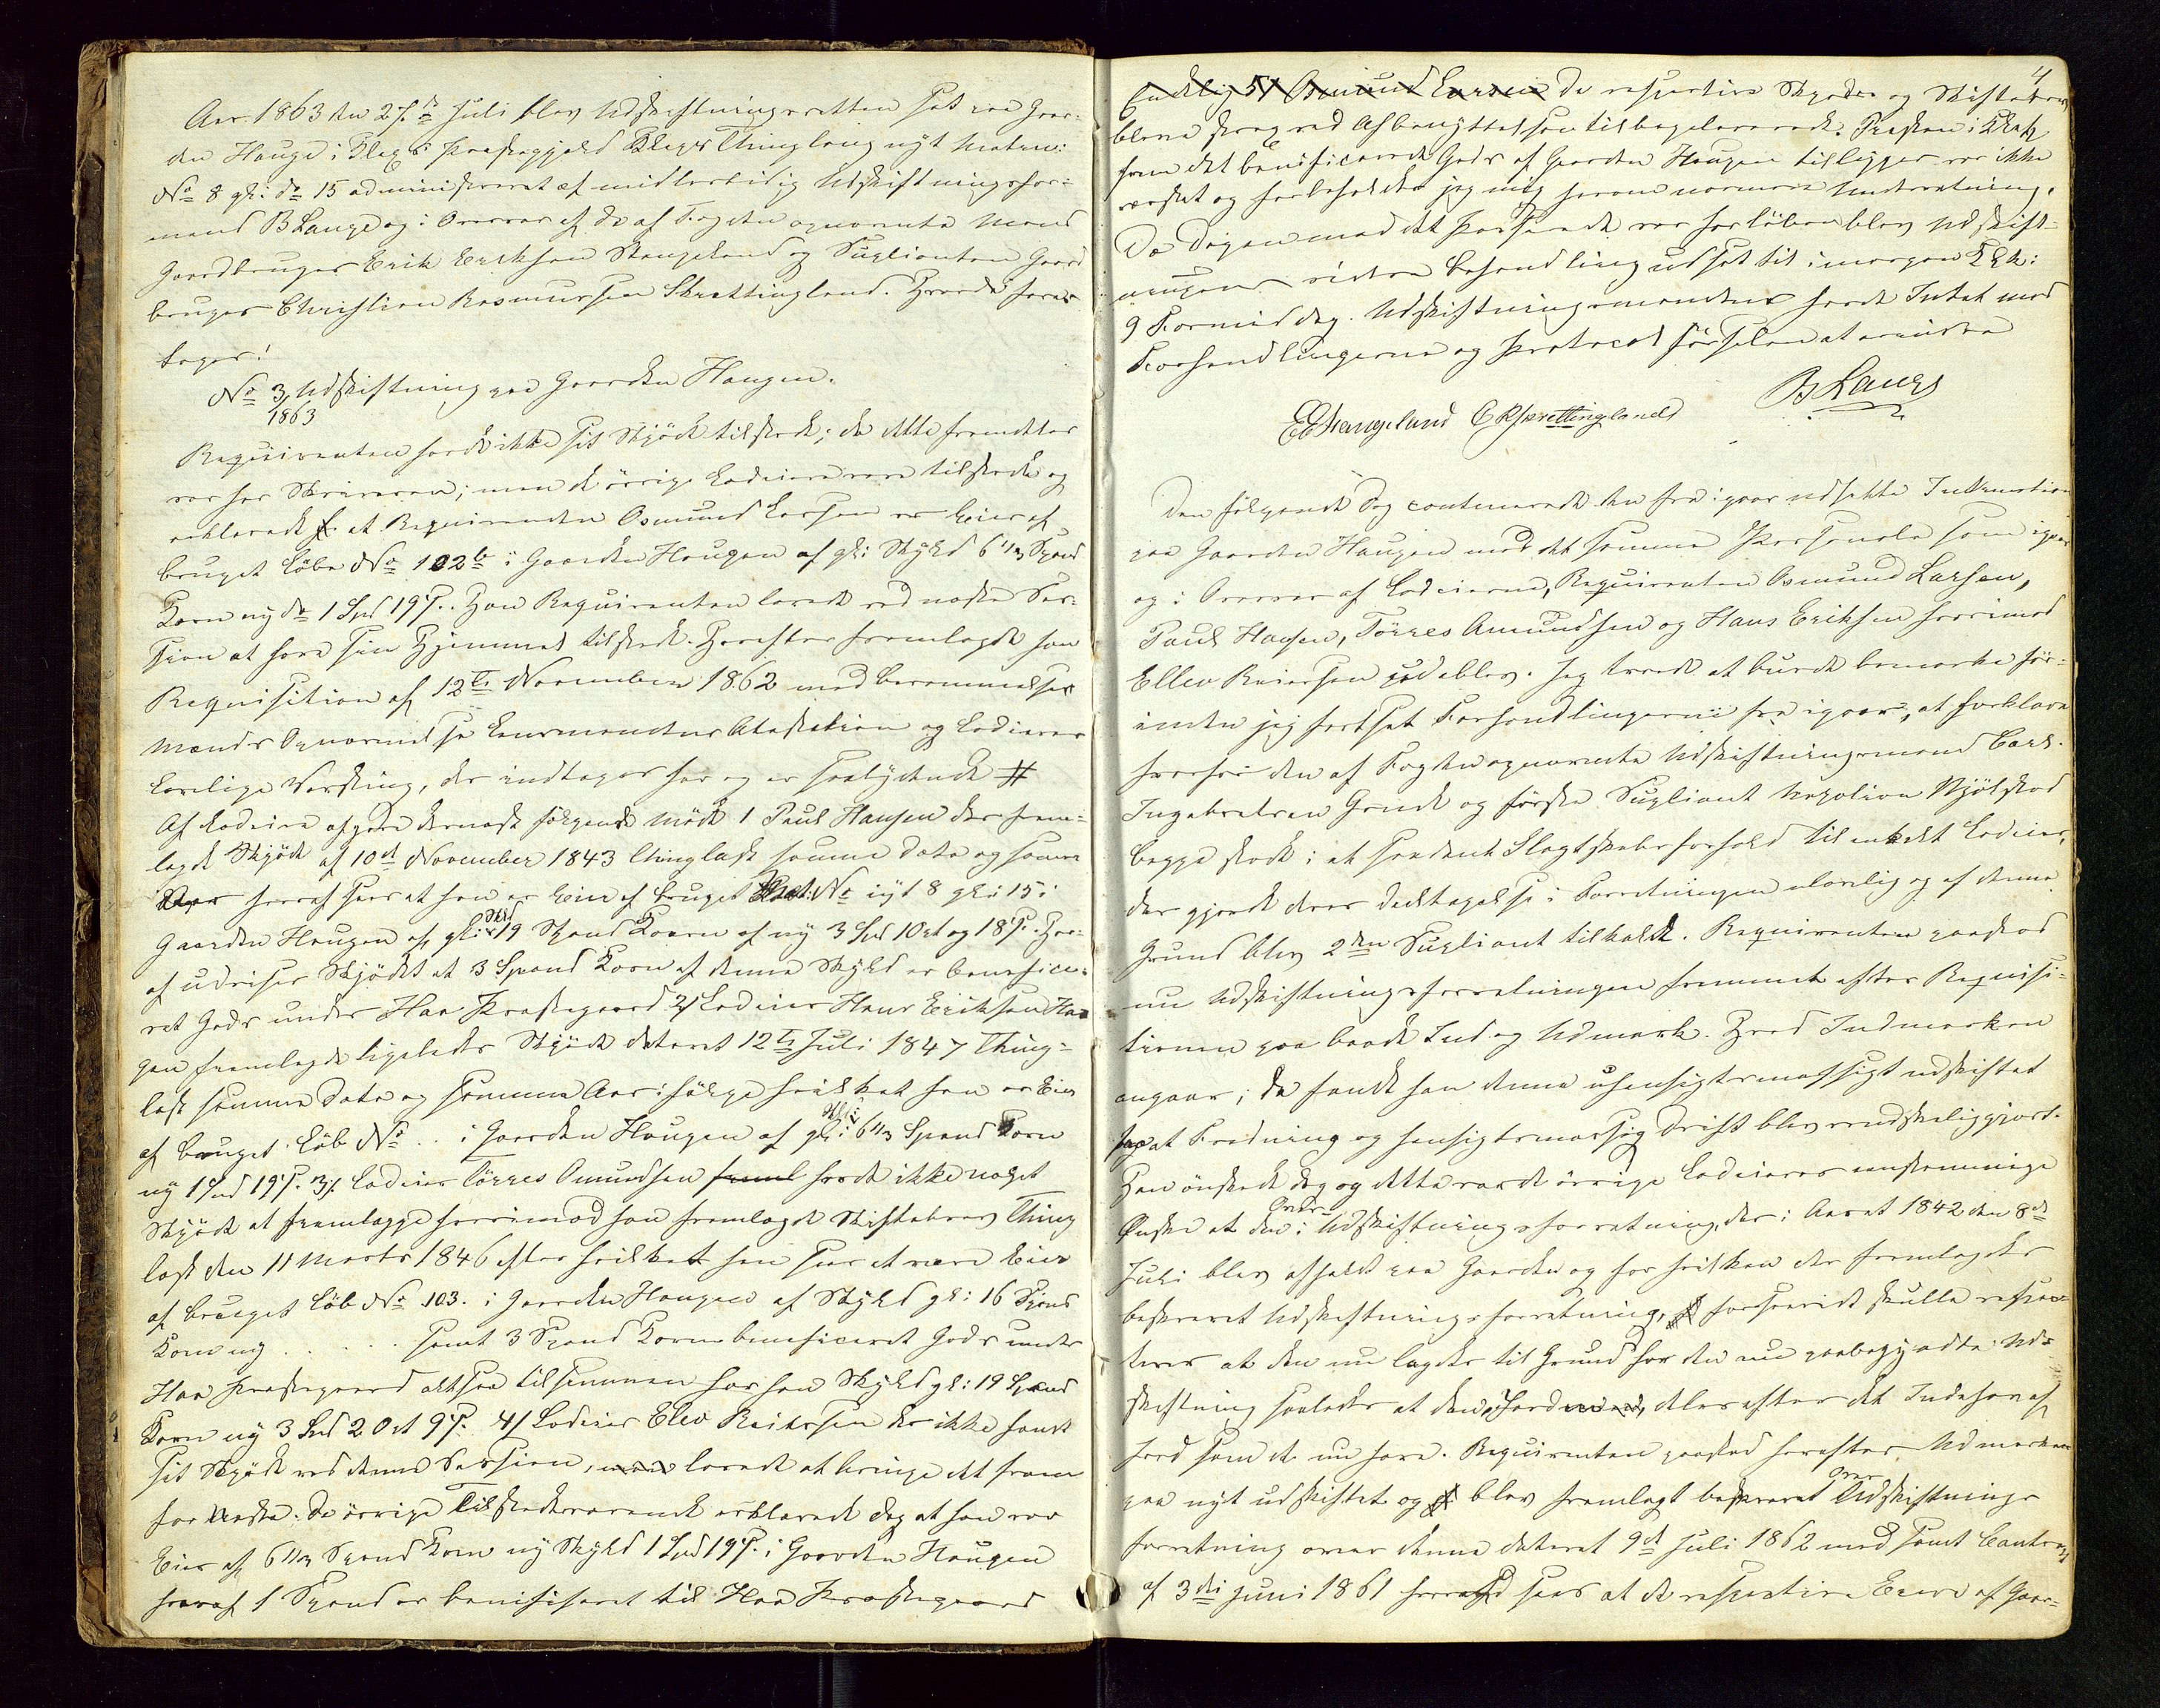 Aar 1863 den 27de Juli blev Udskiftningsretten sat paa Gaar-
den Hauge i Klep Præstegjeld Kleps Thinglaug nyt Matrr:
No 8 gl: do 15 administreret af midlertidig Udskiftningsfor-
mand B Lauge og i Overvær af de af Fogden opnævnte Mænd
Gaardbruger Erik Eriksen Stangeland og Suplianten Gaard
bruger Christian Rasmussen Skrettingland. Hvorda fore-
toges!
No 3 Udskiftning paa Gaarden Haugen.
1863
Requirenten havde ikke sit Skjöde tilstede; da dette fremdeles
var hos Skriveren; men de övrige Lodeiere vare tilstede og
erklærede at Requirenten Osmund Larsen er Eier af
bruget Löbe No 102b i Gaarden Haugen af gl: Skyld 6 1/3 Spand
Korn ny do 1 Spd 19 S. Han Requirenten lovede ved næste Ses-
sion at have sin Hjemmel tilstede. Herefter fremlagde han
Requisition af 12te November 1862 med Berammelse
Mænds Opnævnelse Lensmandens Atestation og Lodeieres
lovlige Varsling, der indtages her og er saalydende #
Af Lodeiere afgave dernæst fölgende Möde 1 Paul Hansen der frem-
lagde Skjöde af 10de November 1843 thinglæst samme Dato og samme
Aar hvoraf sees at han er Eier af bruget Mat: No nyt 8 gl: 15 i
Gaarden Haugen af gl: Skl 19 Spand Korn af ny 3 Spd 1 Ort og 18 S. Her-
af udviser Skjödet at 3 Spand Korn af denne Skyld er benefice-
ret Gods under Haa Præstegaard 2/ Lodeier Hans Eriksen Hau
gen fremlagde ligeledes Skjöde dateret 12te Juli 1847 thing-
læst samme Dato og samme Aar ifölge hvilket han er Eier
af bruget Löb No .. i Gaarden Haugen af gl: Skl: 6 1/3 Spand Korn
ny 1 Spd 19 S. 3/ Lodeier Törres Omundsen havde ikke noget
Skjöde at fremlægge hvorimod han fremlagde Skiftebrev thing
læst den 11 Marts 1846 efter hvilket han sees at være Eier
af bruget Löb No 103. i Gaarden Haugen af Skyld gl: 16 Spand
Korn ny . . . . . samt 3 Spand Korn beneficeret Gods under
Haa Præstegaard altsaa tilsammen har han Skyld gl: 19 Spand
Korn ny 3 Spd 2 Ort 9 S. 4/ Lodeier Elev Reiersen der ikke havde
sit Skjöde ved denne Session, lovede at bringe det frem
for næste. De övrige Tilstedeværende erklærede dog at han var
Eier af 6 1/3 Spand Korn ny Skyld 1 Spd 19 S. i Gaarden Haugen
hvoraf 1 Spand er benificeret til Haa Præstegaard
4
Endelig 5/ Osmund Larsen De respective Skjöder og Skiftebrev
bleve strax ved Afbenyttelsen tilbageleverede. Præsten i Klep
som det benificerede Gods af Gaarden Haugen tilligger var ikke
varslet og forbeholder jeg mig herom nærmere Underretning.
Da Dagen med det Passerede var forlöben blev Udskift-
ningens videre Behandling udsat til imorgen Kl:
9 Formiddag. Udskiftningsmændene havde Intet mod
Forhandlingerne og Protocolförselen at erindre
B Lauge
EEStangeland CRSkrettingland
Den fölgende Dag continuerede den fra igaar udsatte
paa Gaarden Haugen med det samme Personale som igaar
og i Overvær af Lodeierne, Requirenten Osmund Larsen,
Paul Hansen, Törres Amundsen og Hans Eriksen hvorimod
Ellev Reiersen udeblev. Jeg troede at burde bemærke för-
inden jeg fortsat Forhandlingerne fra igaar, at forklare
hvorfor den af Fogden opnævnte Udskiftningsmand Carl
Ingebretsen Grude og förste Supliant Napolion Njölstad
begge stode i et saadant Slægtskabsforhold til enkelt Lodeier,
der gjorde deres Deeltagelse i Forretningen ulovlig og af denne
Grund blev 2den Supliant tilkaldt. Requirenten paastod
nu Udskiftningsforretningen fremmet efter Requisi-
tionen paa baade Ind og Udmark. Hvad Indmarken
angaar; da fandt han denne uhensigtsmæssigt udskiftet
at Fredning og hensigtsmæssig Drift blev vanskeliggjort.
Han önskede dog og dette var de övrige Lodeieres eenstemmige
Önske at den Over Udskiftningsforretning, der i Aaret 1842 den 8de
Juli blev afholdt paa Gaarden og for hvilken der fremlagdes
beskrevet Udskiftningsforretning, forsaavidt skulle respec-
teres at den nu lagdes til Grund for den nu paabegyndte Ud-
skiftning saaledes at den Jord deles efter det Indehav af
Jord som de nu have. Requirenten paastod herefter Udmarken
paa nyt udskiftet og blev fremlagt beskrevet Over Udskiftnings
forretning over denne dateret 9de Juli 1862 med samt Contract
af 3die Juni 1861 hvoraf sees at de respective Eiere af Gaar-